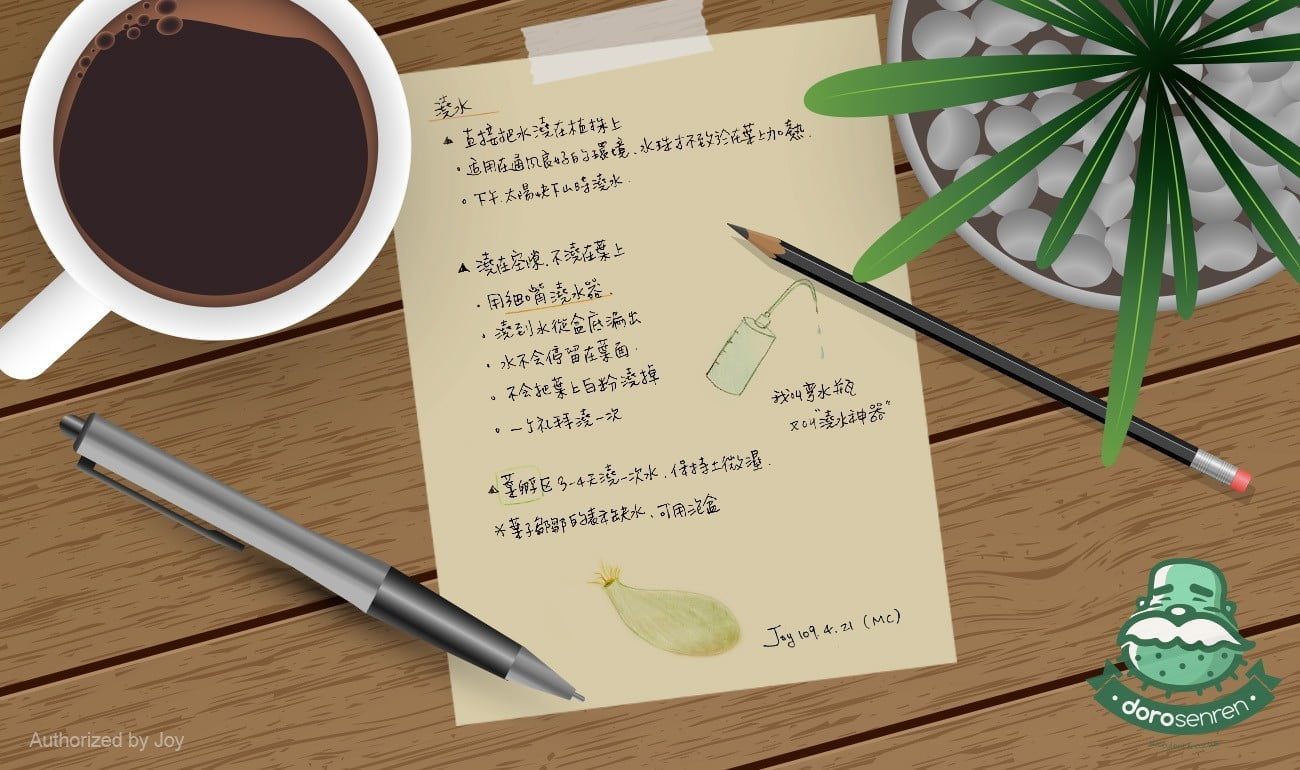 澆水
▲ 直接把水澆在植株上
• 適用在通風良好的環境、水珠才不致於在葉上加熱.
• 下午.太陽快下山時澆水.
▲ 澆在空隙.不澆在葉上
• 用細嘴澆水器.
• 澆到水從盆底漏出
• 水不会停留在葉面.
• 不会把葉上白粉澆掉
• 一个礼拜澆一次
我叫彎水瓶
又叫"澆水神器"
▲ 葉孵区3-4天澆一次水.保持土微濕.
※葉子皺皺的表示缺水、可用泡盆
Joy 109.4.21 (MC)
dorosenren
Authorized by Joy